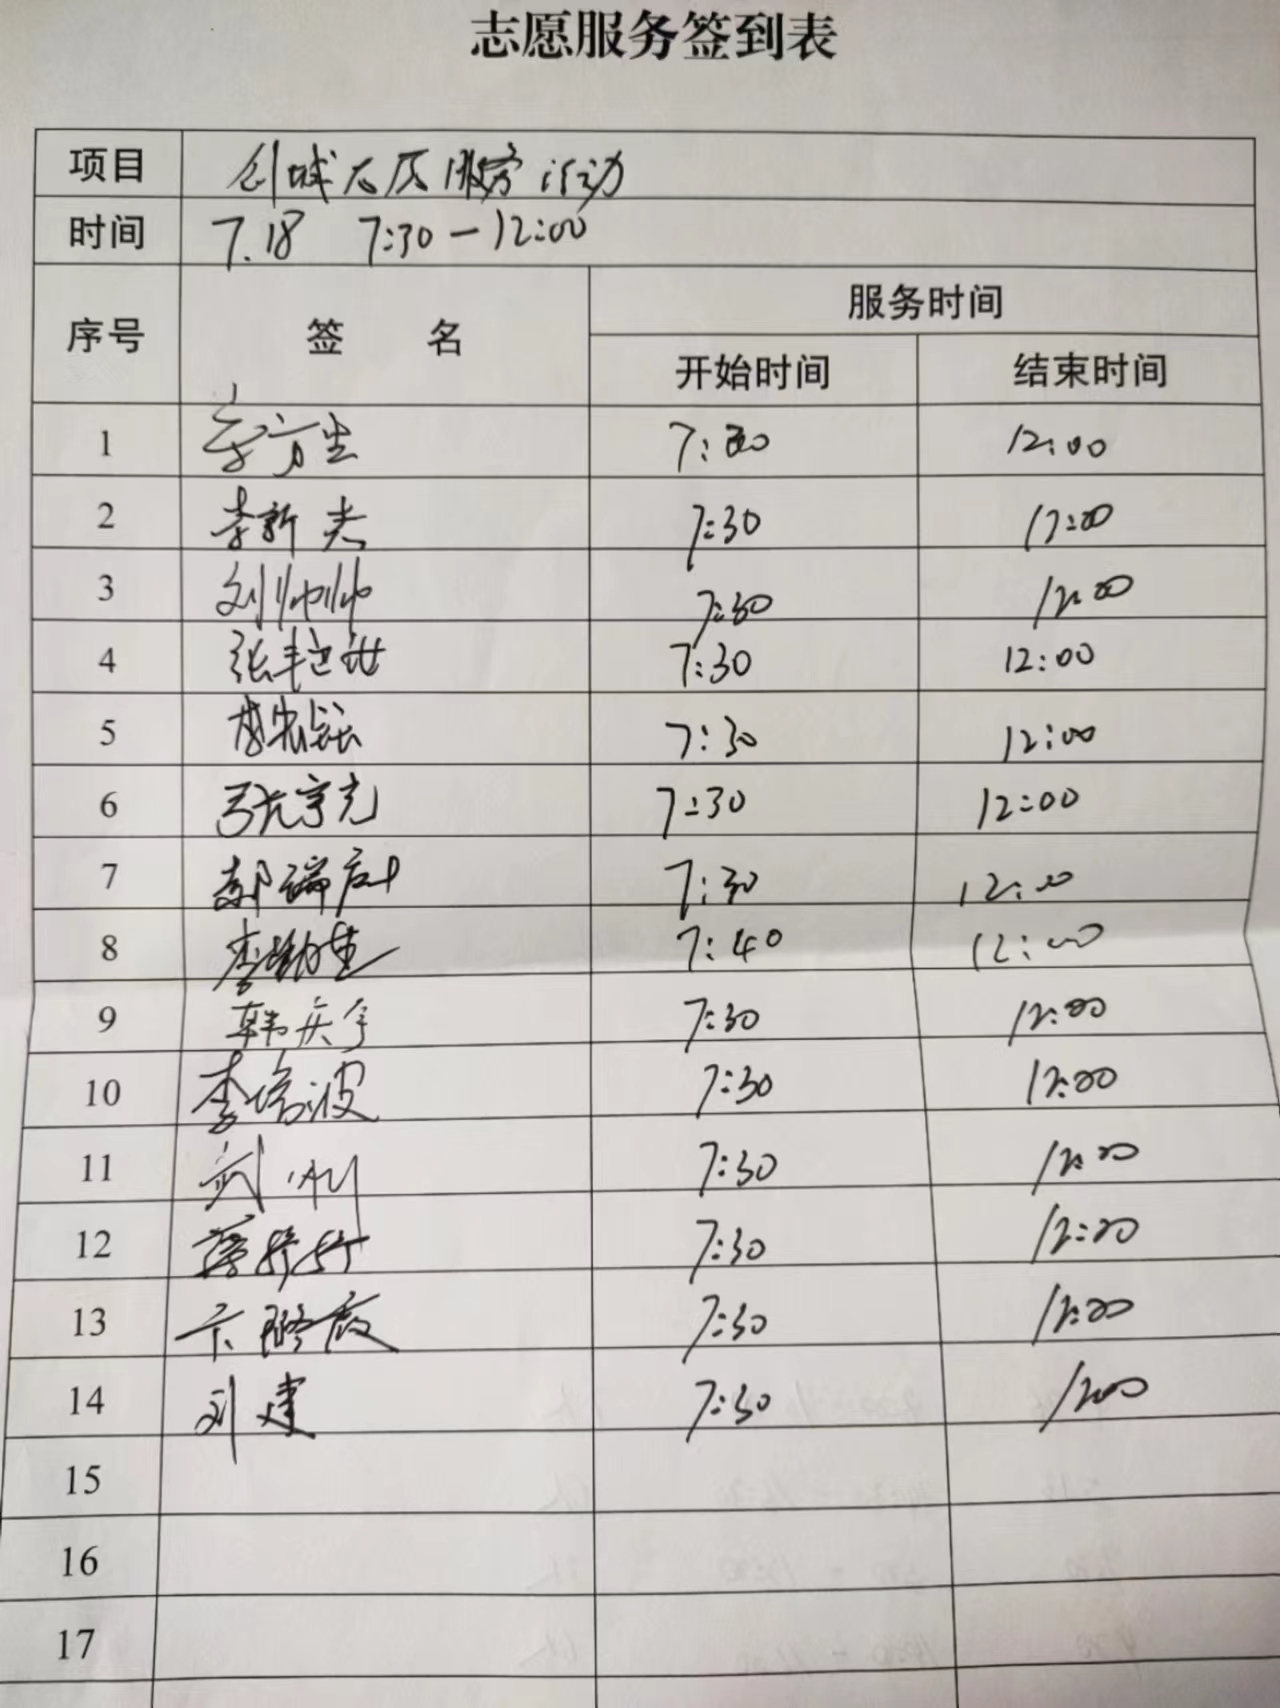 志愿服务签到表
项目 创城志愿服务活动
时间 7.18 7:30—12:00
序号 签 名 服务时间
开始时间 结束时间
1 7:30 12:00
2 李新 7:30 12:00
3 刘帅帅 7:30 12:00
4 张 7:30 12:00
5 李宏 7:30 12:00
6 张京克 7:30 12:00
7 郭瑞 7:30 12:00
8 李 7:40 12:00
9 韩庆 7:30 12:00
10 李培波 7:30 12:00
11 7:30 12:00
12 7:30 12:00
13 7:30 12:00
14 刘建 7:30 1200
15
16
17